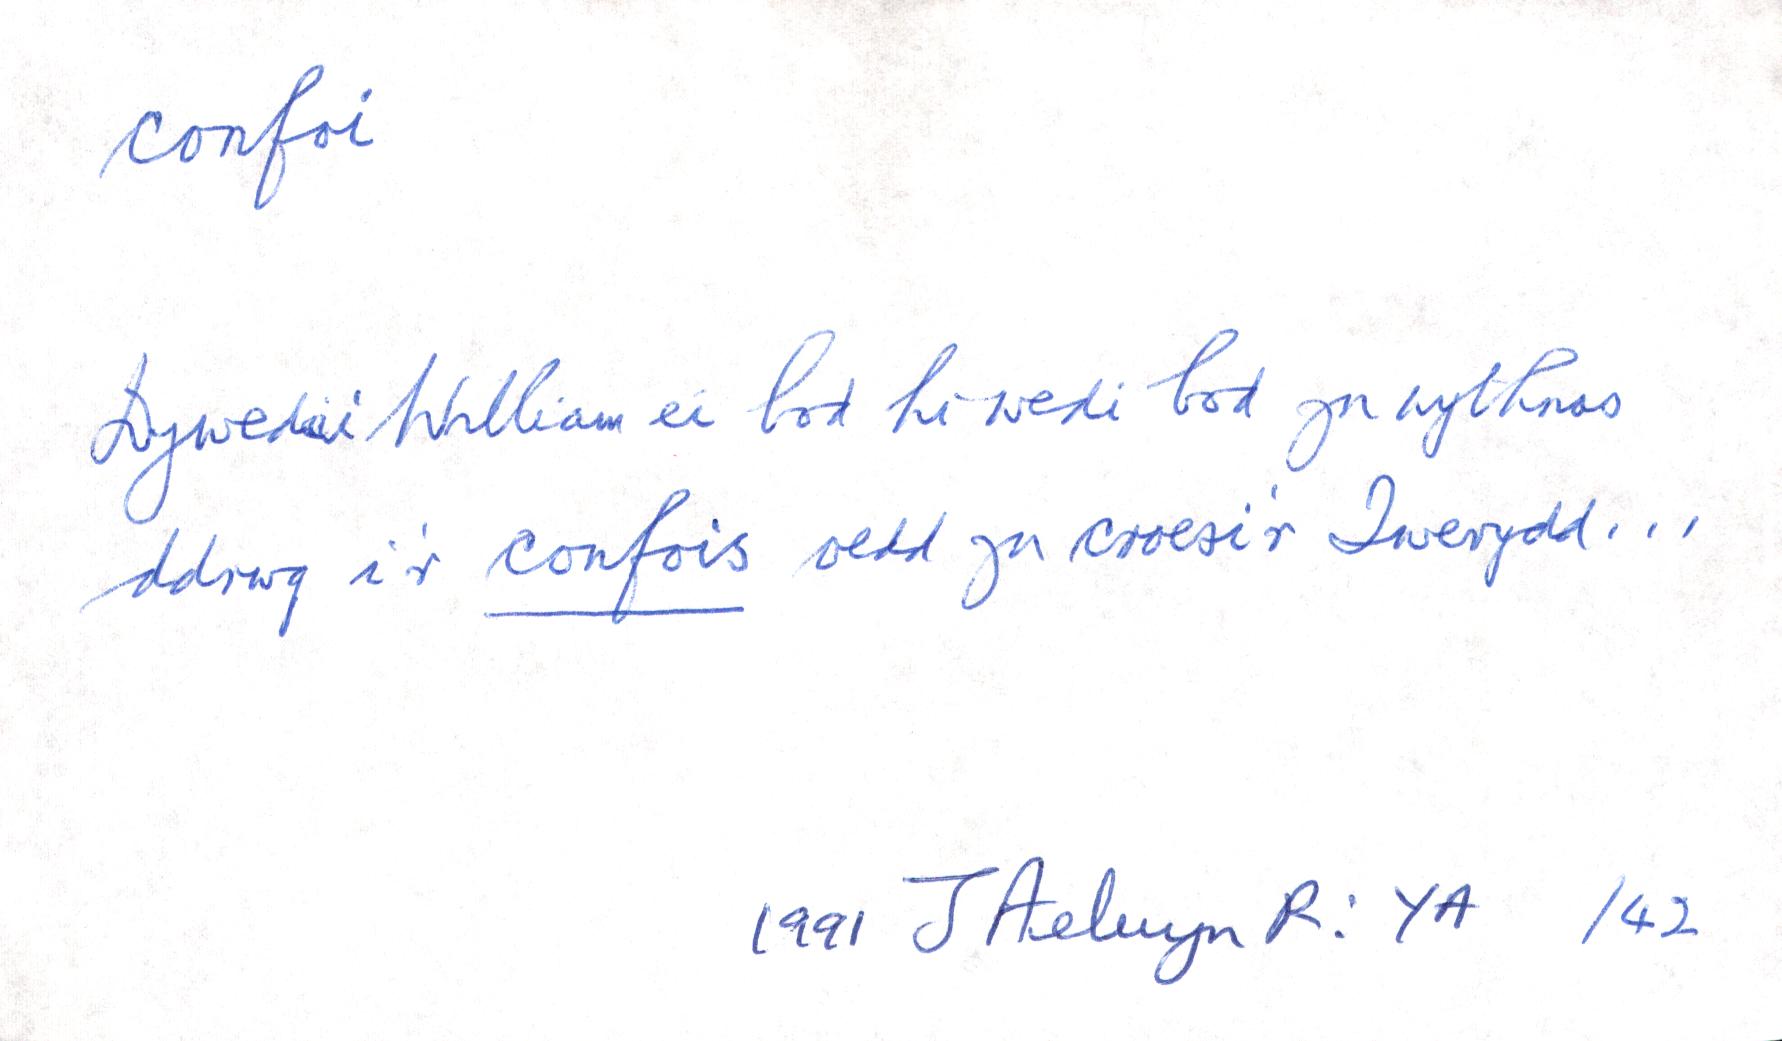 confoi
Dywedai William ei bod hi wedi bod yn wythnos
ddrwg i'r confois oedd yn croesi'r Iwerydd...
1991 J Aelwyn R: YA /42